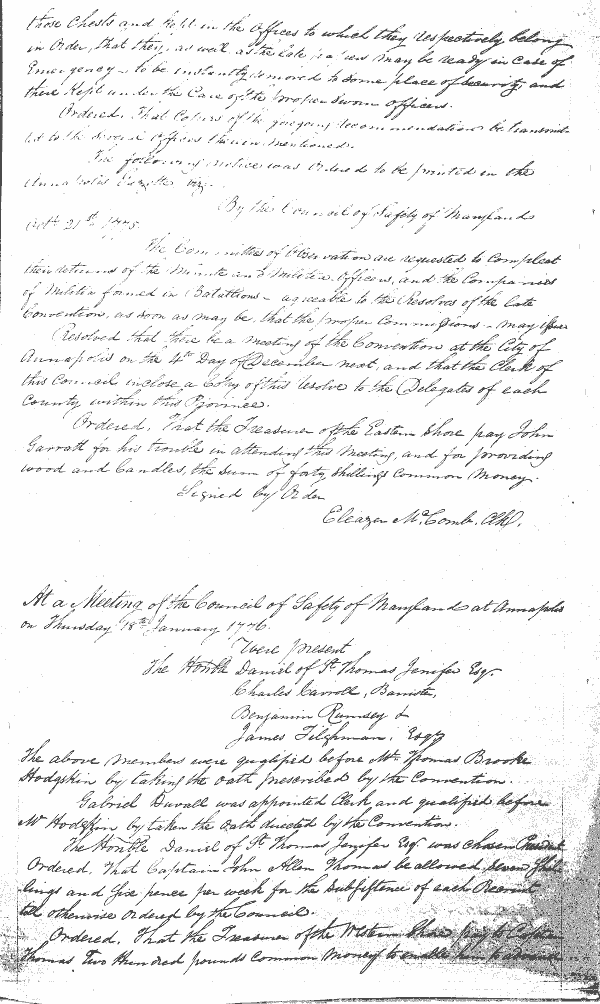 those Chests and kept in the Offices to which they respectively belong
in Order, that they, as well as the late papers may be ready in case of
Emergency - to be instantly removed to some place of security, and
there kept under the Care of the proper sworn officers.
Ordered, That Copies of the foregoing recommendation be transmit-
ted to the several Offices therein mentioned.
The following notice was Ordered to be printed in the
Annapolis Gazette viz.
By the Council of Safety of Maryland
Octr. 21st 1775.
The Committees of Observation are requested to compleat
their returns of the Minute and Militia Officers, and the Companies
of Militia formed in Battalions - agreable to the Resolves of the late
Convention, as soon as may be, that the proper Commissions - may Issue
Resolved that there be a meeting of the Convention at the City of
Annapolis on the 4th Day of December next, and that the Clerk of
this Council inclose a Copy of this resolve to the Delegates of each
County within this Province.
Ordered, That the Treasurer of the Eastern Shore pay John
Garratt for his trouble in attending this Meeting, and for providing
wood and Candles, the sum of forty shillings common Money.
Signed by Order
Eleazer McComb. Clk.
At a Meeting of the Council of Safety of Maryland at Annapolis
on Thursday 18th January 1776.
Were present
The Honble Daniel of St. Thomas Jenifer Esqr.
Charles Carroll, Barrister,
Benjamin Rumsey &
James Tilghman, Esqrs
The above members were qualified before Mr. Thomas Brooke
Hodgkin by taking the oath prescribed by the Convention.
Gabriel Duvall was appointed Clerk, and qualified before
Mr Hodgkin by taken the Oath directed by the Convention.
The Honble Daniel of St. Thomas Jenifer Esqr was chosen President
Ordered, That Captain John Allen Thomas be allowed seven shil-
lings and six pence per week for the Subsistence of each Recruit
till otherwise ordered by the Council.
Ordered, That the Treasurer of the Western Shore pay to Captain
Thomas Two Hundred pounds Common Money to enable him to advance